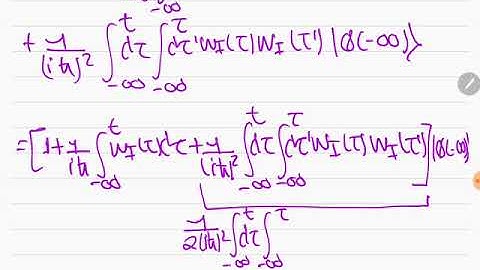 -∞ -∞
+ 1/(iħ)² ∫_{-∞}^{t} dτ ∫_{-∞}^{τ} dτ' W_I(τ) W_I(τ') |φ(-∞)⟩
= [1 + 1/iħ ∫_{-∞}^{t} W_I(τ) dτ + 1/(iħ)² ∫_{-∞}^{t} dτ ∫_{-∞}^{τ} dτ' W_I(τ) W_I(τ')] |φ(-∞)⟩
1/2(iħ)² ∫_{-∞}^{t} dτ ∫_{-∞}^{τ}